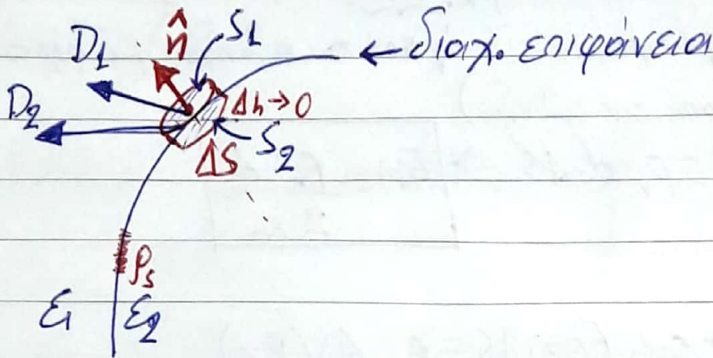 D₁ n̂ S₁ ← διαχ. επιφάνεια
D₂ Δh→0
ΔS S₂
ρₛ
ε₁ ε₂